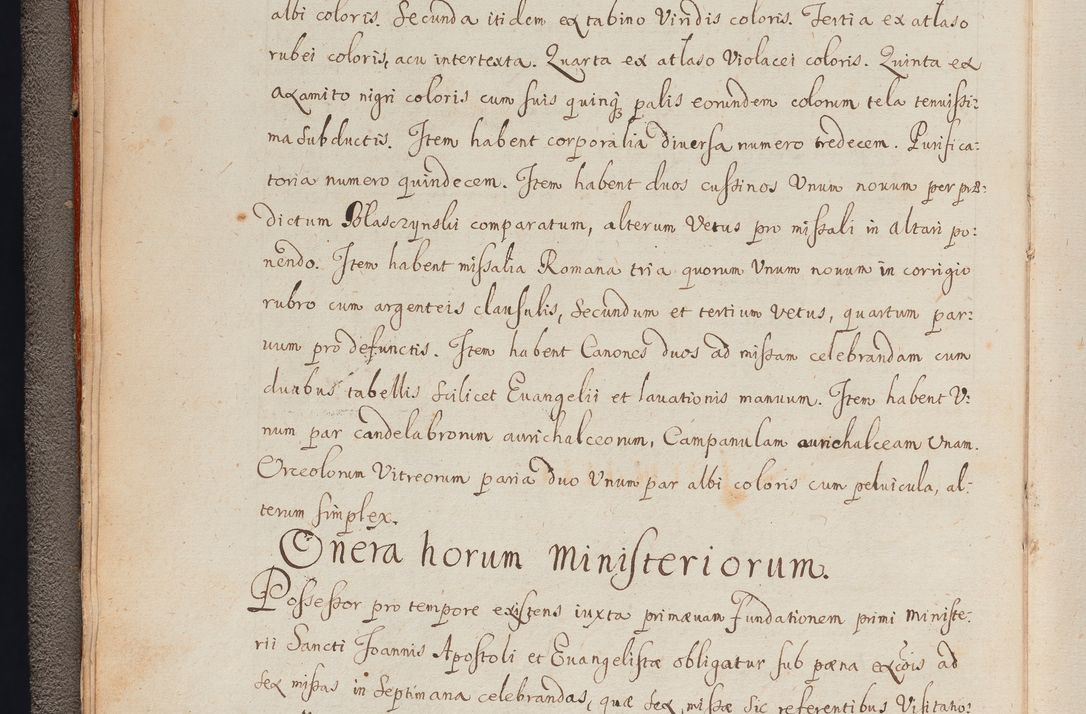 albi coloris. Secunda itidem ex tabino Viridis coloris. Tertia ex atlaso
rubei coloris, acu intertexta. Quarta ex atlaso Violacei coloris. Quinta ex
Axamito nigri coloris cum suis quinq; palis eorundem colorum tela tenuissi:
ma subductis. Item habent corporalia diversa numero tredecem. Purifica:
toria numero quindecem. Item habent duos cussinos Unum nouum per præ:
dictum Blasczynski comparatum, alterum Vetus pro missali in Altari po:
nendo. Item habent missalia Romana tria quorum Unum nouum in corrigio
rubro cum argenteis clausulis, Secundum et tertium vetus, quartum par:
uum pro defunctis. Item habent Canones duos ad missam celebrandam cum
duabus tabellis Scilicet Euangelii et lauationis manuum. Item habent V:
num par candelabrorum aurichalceorum, Campanulam aurichalceam Unam.
Orceolorum Vitreorum paria duo Unum par albi coloris cum peluicula, al:
terum simplex.
Onera horum Ministeriorum.
Possessor pro tempore existens iuxta primævam Fundationem primi Ministe:
rii Sancti Joannis Apostoli et Euangelistæ obligatur sub pæna excõis ad
sex missas in Septimana celebrandas, quæ sex missæ sic referentibus Visitato: